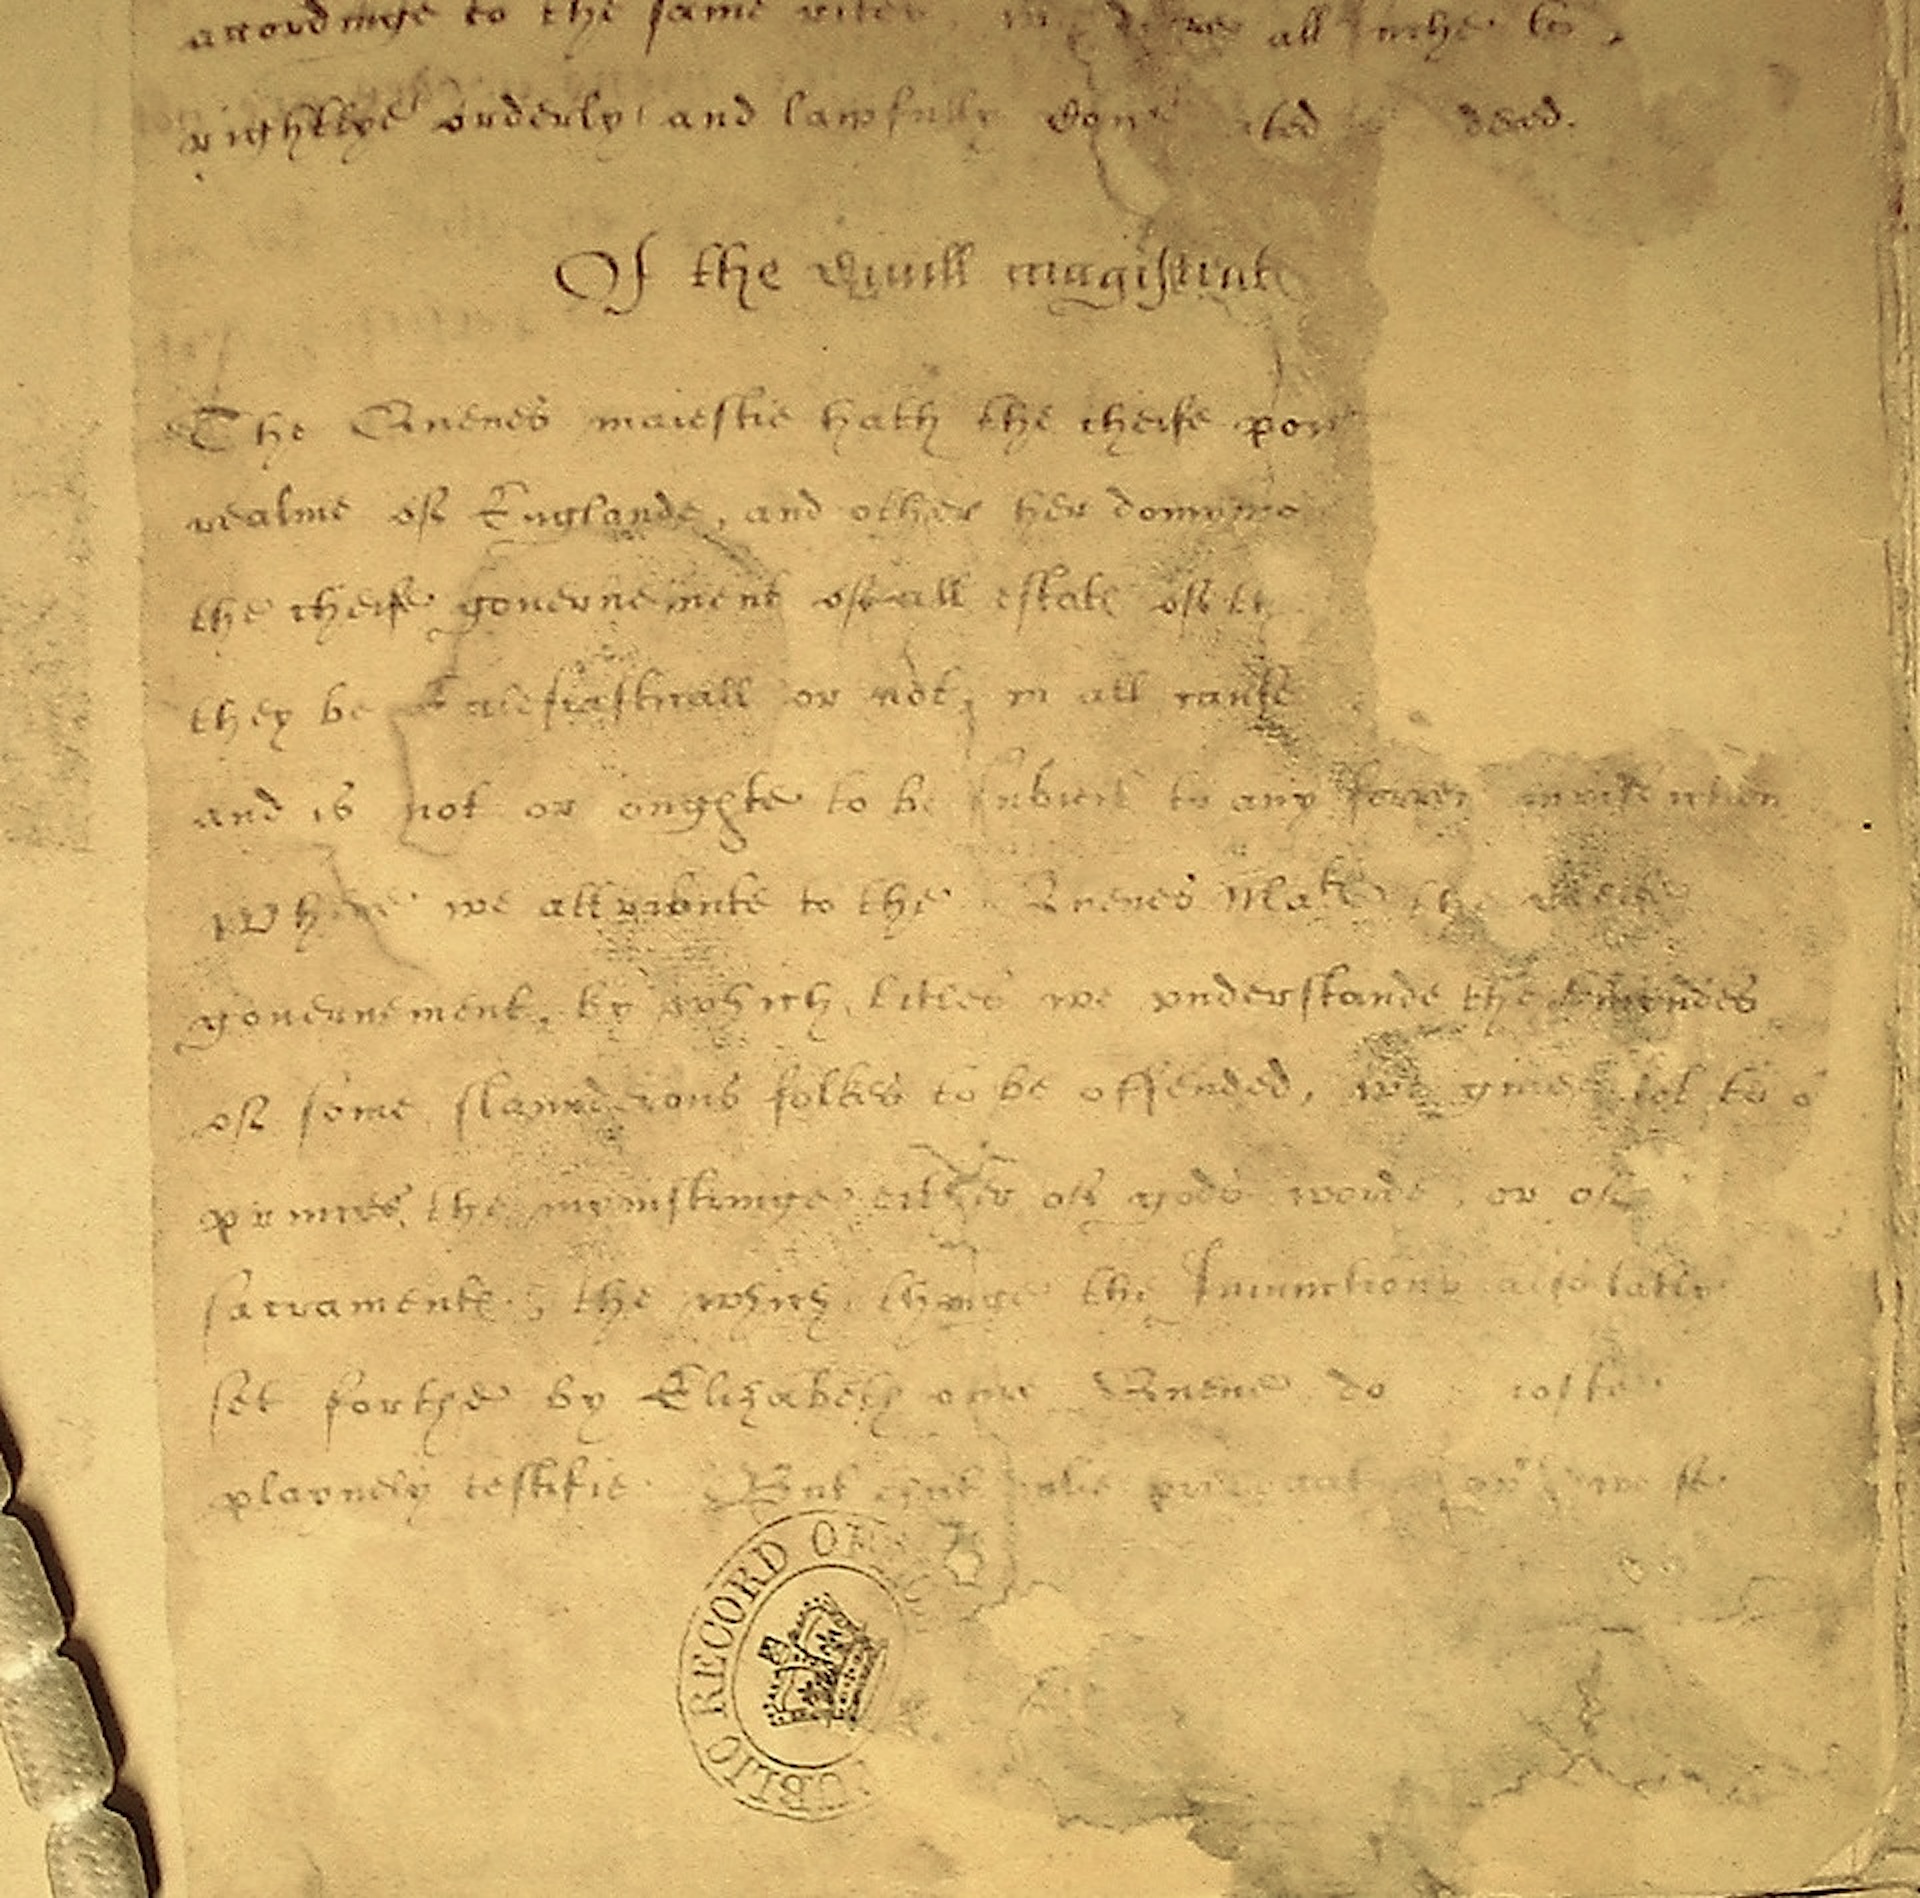 accordinge to the same rites, all suche to
rightlye orderly and lawfully deed.
Of the Civill magistrat
The Quenes maiestie hath the cheife pow
realme of Englande, and other her domynio
the cheife governement of all estate of th
they be Ecclesiasticall or not, in all cause
and is not or oughte to be subiect to any forren
Where we attribute to the Quenes Matie the cheife
gouernement, by which titles we vnderstande the myndes
of some slaunderous folkes to be offended, we giue not to o
princes, the mynistringe either of gods worde, or of
sacramente; the which thinge the Iniunctions also latly
set forthe by Elizabeth our Quene do
playnely testifie. But
PUBLIC RECORD OFFICE